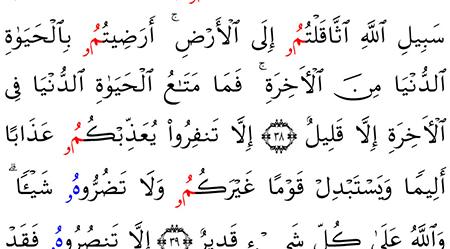 سَبِيلِ ٱللَّهِ ٱثَّاقَلْتُمُۥ إِلَى ٱلْأَرْضِ ۚ أَرَضِيتُمُۥ بِٱلْحَيَوٰةِ
ٱلدُّنْيَا مِنَ ٱلْأَخِرَةِ ۚ فَمَا مَتَٰعُ ٱلْحَيَوٰةِ ٱلدُّنْيَا فِى
ٱلْأَخِرَةِ إِلَّا قَلِيلٌ ﴿٣٨﴾ إِلَّا تَنفِرُوا۟ يُعَذِّبْكُمُۥ عَذَابًا
أَلِيمًا وَيَسْتَبْدِلْ قَوْمًا غَيْرَكُمُۥ وَلَا تَضُرُّوهُۥ شَيْـًٔا ۗ
وَٱللَّهُ عَلَىٰ كُلِّ شَىْءٍ قَدِيرٌ ﴿٣٩﴾ إِلَّا تَنصُرُوهُۥ فَقَدْ